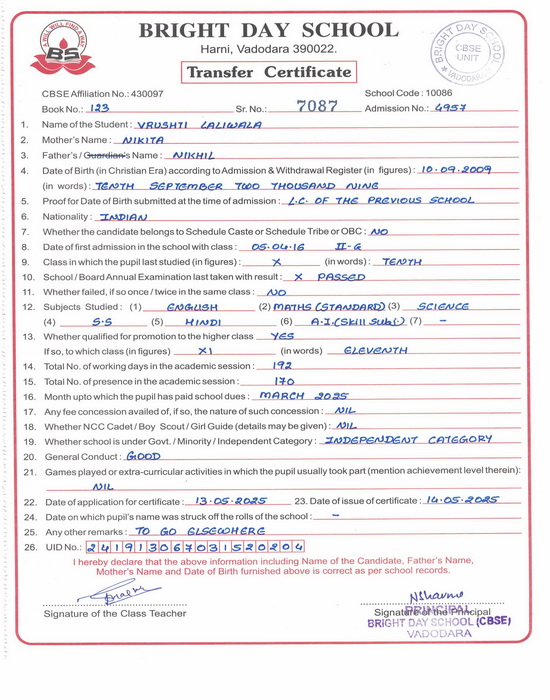 A WILL WILL FIND A WAY
BS
BRIGHT DAY SCHOOL
Harni, Vadodara 390022.
Transfer Certificate
BRIGHT DAY SCHOOL
CBSE
UNIT
VADODARA
CBSE Affiliation No.: 430097 School Code : 10086
Book No.: 123 Sr. No.: 7087 Admission No.: 4957
1. Name of the Student : VRUSHTI LALIWALA
2. Mother's Name : NIKITA
3. Father's / Guardian's Name : NIKHIL
4. Date of Birth (in Christian Era) according to Admission & Withdrawal Register (in figures) : 10.09.2009
(in words) : TENTH SEPTEMBER TWO THOUSAND NINE
5. Proof for Date of Birth submitted at the time of admission : L.C. OF THE PREVIOUS SCHOOL
6. Nationality : INDIAN
7. Whether the candidate belongs to Schedule Caste or Schedule Tribe or OBC : NO
8. Date of first admission in the school with class : 05.04.16 II-G
9. Class in which the pupil last studied (in figures) : X (in words) : TENTH
10. School / Board Annual Examination last taken with result : X PASSED
11. Whether failed, if so once / twice in the same class : NO
12. Subjects Studied : (1) ENGLISH (2) MATHS (STANDARD) (3) SCIENCE
(4) S.S (5) HINDI (6) A.I.(Skill Subj.) (7) -
13. Whether qualified for promotion to the higher class YES
If so, to which class (in figures) XI (in words) ELEVENTH
14. Total No. of working days in the academic session : 192
15. Total No. of presence in the academic session : 170
16. Month upto which the pupil has paid school dues : MARCH 2025
17. Any fee concession availed of, if so, the nature of such concession : NIL
18. Whether NCC Cadet / Boy Scout / Girl Guide (details may be given) : NIL
19. Whether school is under Govt. / Minority / Independent Category : INDEPENDENT CATEGORY
20. General Conduct : GOOD
21. Games played or extra-curricular activities in which the pupil usually took part (mention achievement level therein):
NIL
22. Date of application for certificate : 13.05.2025 23. Date of issue of certificate : 14.05.2025
24. Date on which pupil's name was struck off the rolls of the school : -
25. Any other remarks : TO GO ELSEWHERE
26. UID No.: 241913067031520204
I hereby declare that the above information including Name of the Candidate, Father's Name,
Mother's Name and Date of Birth furnished above is correct as per school records.
Signature of the Class Teacher Signature of the Principal
PRINCIPAL
BRIGHT DAY SCHOOL (CBSE)
VADODARA